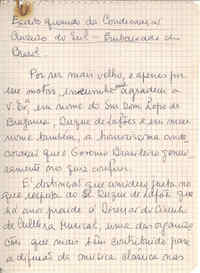 Escrito quando da Condecoração
Cruzeiro do Sul – Embaixada do
Brasil
Por ser mais velho, e apenas por
esse motivo, incumbe-me agradecer a
V. Ex., em nome do Snr. Dom Lopo de
Bragança, Duque de Lafões e em meu
nome também, a honrosíssima conde
coração que o Governo Brasileiro gener
osamente nos quis conferir.
É distinção que considero justa no
que respeita ao Sr. Duque de Lafões que
há anos preside à Direcção do Círculo
de Cultura Musical, uma das organiza
ções que mais têm contribuído para
a difusão da música clássica nas